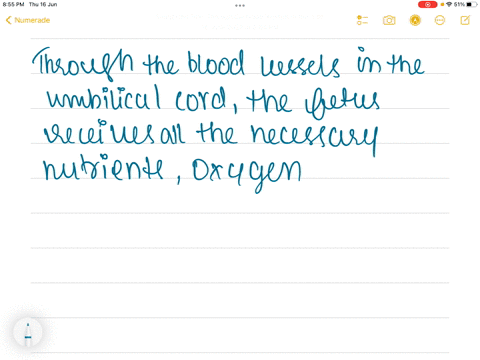 8:55 PM Thu 16 Jun
51%
Numerade
Through the blood vessels in the
umbilical cord, the fetus
receives all the necessary
nutrients, oxygen